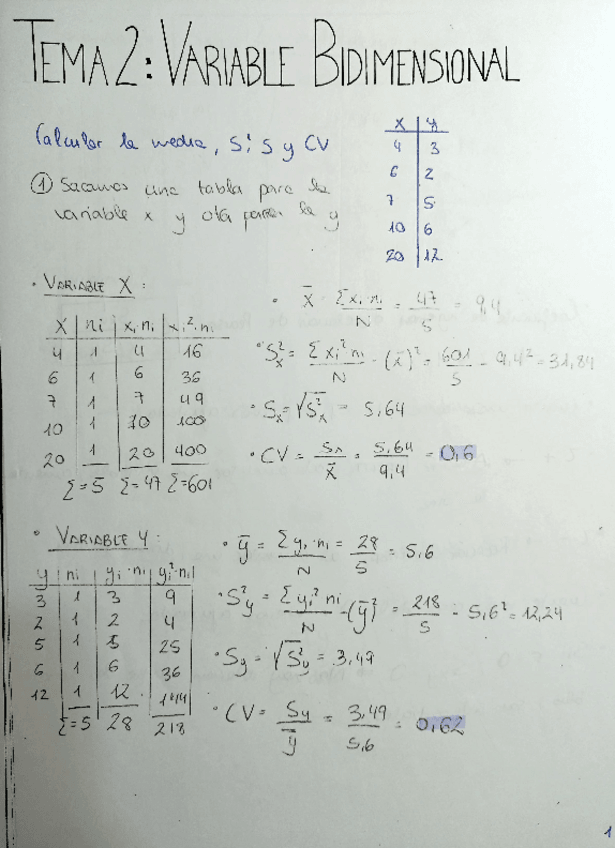 TEMA 2: VARIABLE BIDIMENSIONAL
Calcular la media, S², S y CV
x y
4 3
6 2
7 5
10 6
20 12
① Sacamos una tabla para la
variable x y otra para la y
• VARIABLE X:
X ni xi·ni xi²·ni
4 1 4 16
6 1 6 36
7 1 7 49
10 1 10 100
20 1 20 400
Σ=5 Σ=47 Σ=601
• X̄ = Σxi·ni / N = 47 / 5 = 9,4
• S²x = Σxi²ni / N - (x̄)² = 601 / 5 - 9,4² = 31,84
• Sx = √S²x = 5,64
• CV = Sx / X̄ = 5,64 / 9,4 = 0,6
• VARIABLE Y:
y ni yi·ni yi²·ni
3 1 3 9
2 1 2 4
5 1 5 25
6 1 6 36
12 1 12 144
Σ=5 28 218
• ȳ = Σyi·ni / N = 28 / 5 = 5,6
• S²y = Σyi²ni / N - (ȳ)² = 218 / 5 - 5,6² = 12,24
• Sy = √S²y = 3,49
• CV = Sy / ȳ = 3,49 / 5,6 = 0,62
1